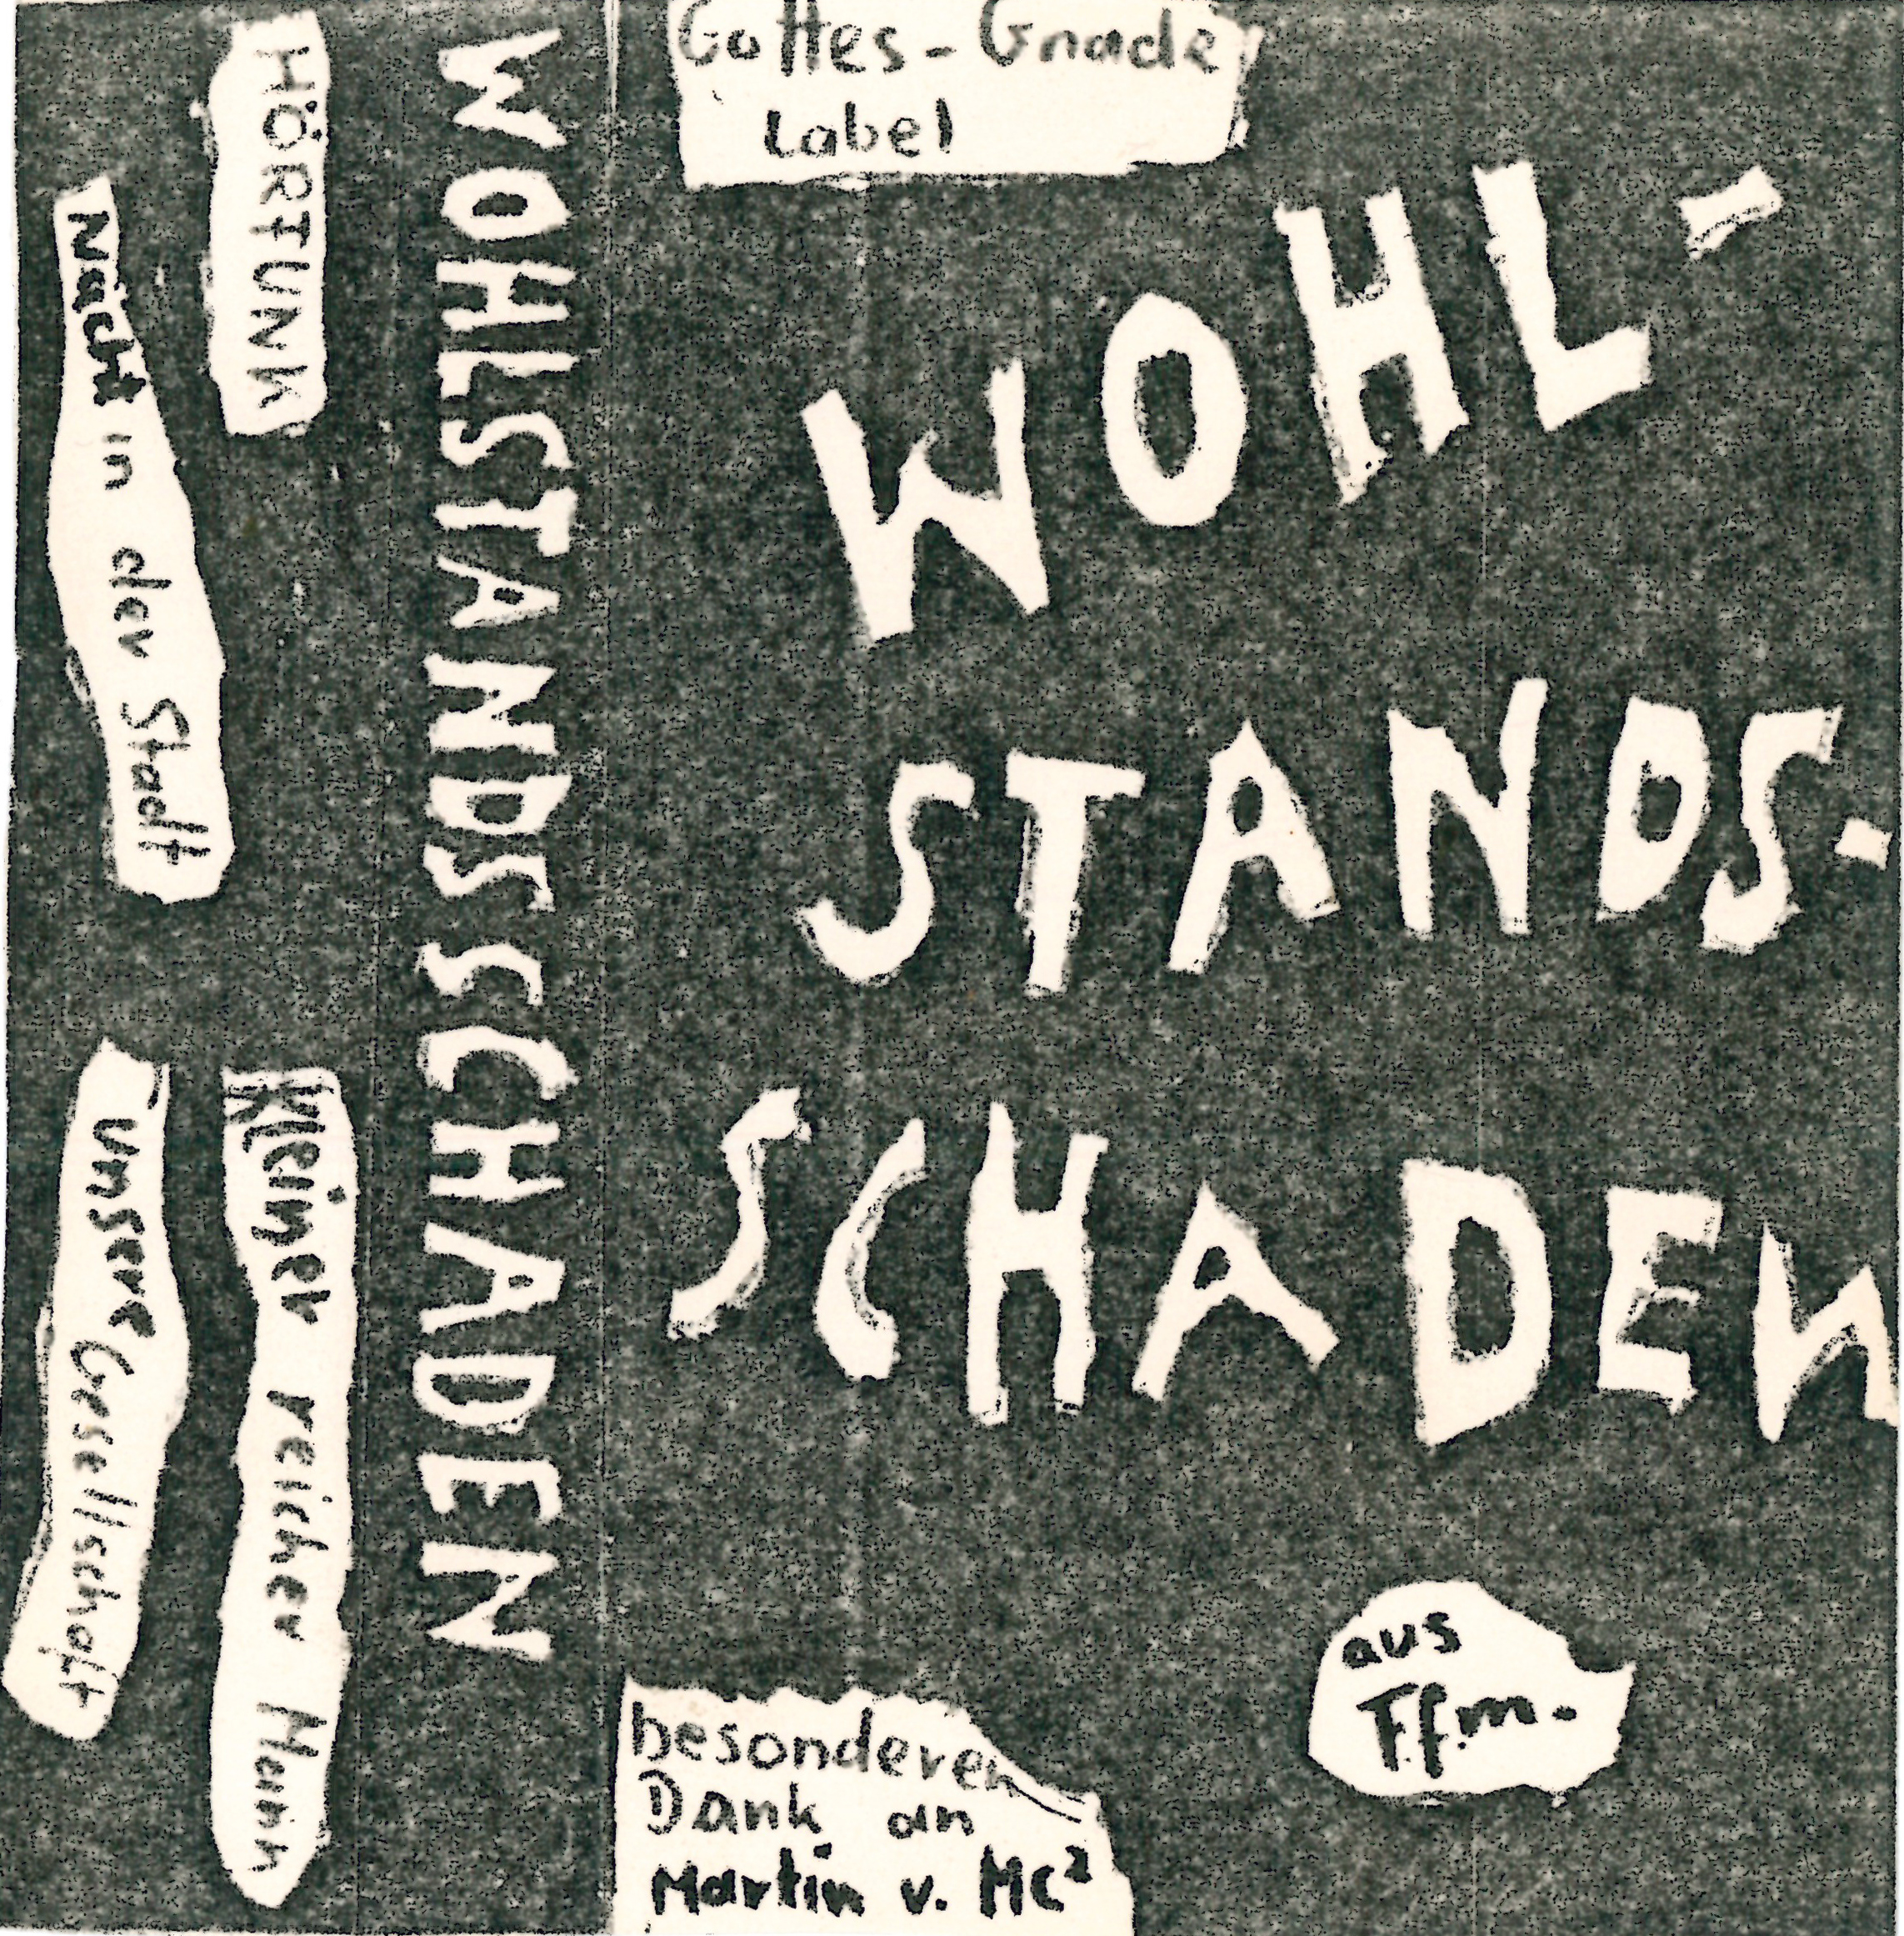 Gottes-Gnade
Label
WOHL-
STANDS-
SCHADEN
aus
Ffm.
besonderen
Dank an
Martin v. MC²
WOHLSTANDSSCHADEN
HÖRFUNK
Nacht in der Stadt
Kleiner reicher Mann
unsere Gesellschaft